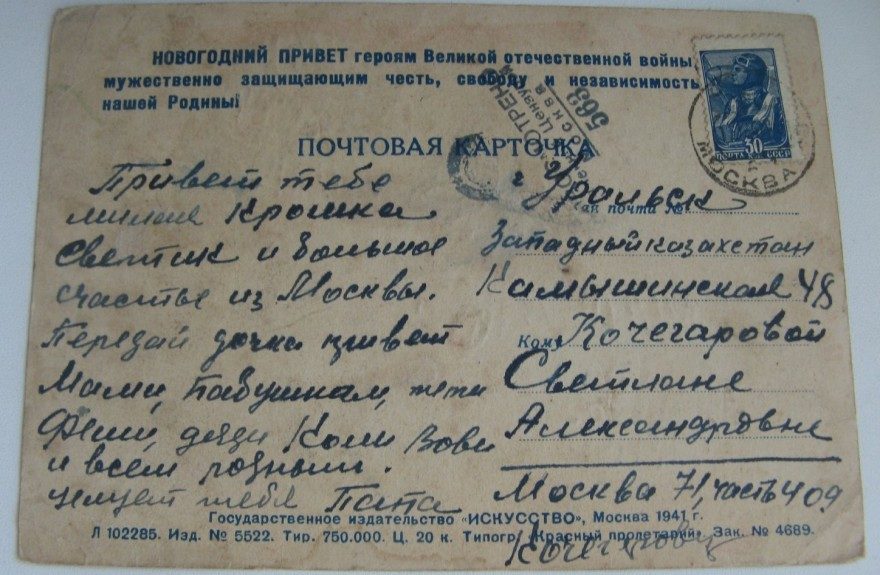 НОВОГОДНИЙ ПРИВЕТ героям Великой отечественной войны,
мужественно защищающим честь, свободу и независимость
нашей Родины!
ПОЧТОВАЯ КАРТОЧКА
30
ПОЧТА СССР
МОСКВА
МОСКВА
569
Привет тебе
милая Крошка
Светик и большое
счастье из Москвы.
Передай дочка привет
Мами, Бабушкам, тети
Фени, дяди Коли Вови
и всем родным.
целует тебя Папа
г. Уральск
почта №
Западный казахстан
Камышинская 48
Кому Кочегаровой
Светлане
Александровне
Москва 71, часть 409
Кочегаров
Государственное издательство «ИСКУССТВО», Москва 1941 г.
Л 102285. Изд. № 5522. Тир. 750.000. Ц. 20 к. Типогр. „Красный пролетарий“. Зак. № 4689.